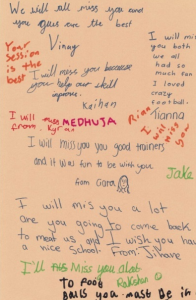 We will all miss you and
you guys are the best
Vinay
Your
Session
is the
best
I will miss you because
you help our skill
improve.
Keihan
I will miss
you both
we all
had so
much fun
I loved
crazy
football
Tianna
I will miss MEDHUJA
from. Kyran
I will
miss you
I will miss you good trainers
and it was fun to be with your
from Ciara
Jake
I will mis you a lot
are you going to come back
to meat us and I wish you hav
a nice School. From: Ji have
I'll Miss you alot
Rakshan
to Poor
Balls you mast be in